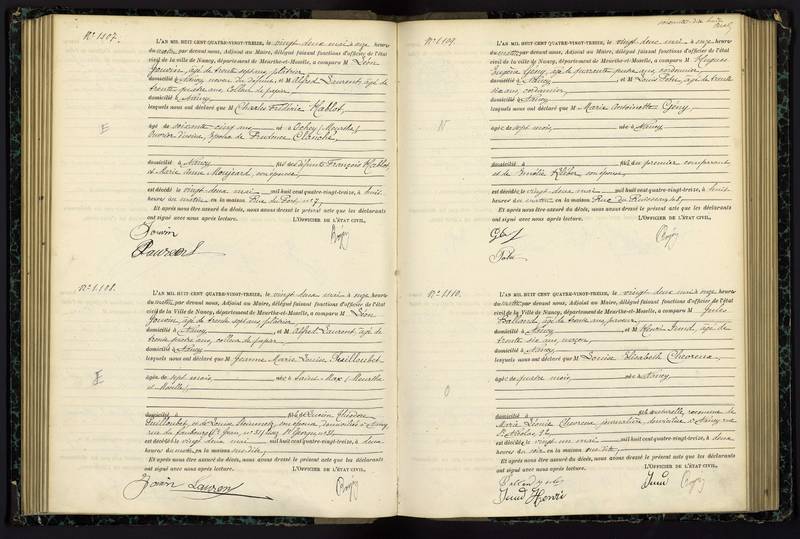 N° 1107.
L'AN MIL HUIT CENT QUATRE-VINGT-TREIZE, le vingt deux mai à onze heures
du matin par devant nous, Adjoint au Maire, délégué faisant fonctions d'officier de l'état
civil de la ville de Nancy, département de Meurthe-et-Moselle, a comparu M Léon
Jouvin, âgé de trente sept ans, plâtrier,
domicilié à Nancy, et M Alfred Laurent, âgé de
trente quatre ans, colleur de papier,
domicilié à Nancy
lesquels nous ont déclaré que M Charles Frédéric Hablot,
E
âgé de soixante cinq ans né à Ochey (Meurthe)
époux de Prudence
domicilié à Nancy fils des défunts François Hablot,
et Marie Anne son épouse,
est décédé le vingt deux mai mil huit cent quatre-vingt-treize, à huit
heures du matin en la maison Rue du Port n° 7,
Et après nous être assuré du décès, nous avons dressé le présent acte que les déclarants
ont signé avec nous après lecture. L'OFFICIER DE L'ÉTAT CIVIL,
Jouvin
Laurent
N° 1108.
L'AN MIL HUIT CENT QUATRE-VINGT-TREIZE, le vingt deux mai à onze heures
du matin par devant nous, Adjoint au Maire, délégué faisant fonctions d'officier de l'état
civil de la Ville de Nancy, département de Meurthe-et-Moselle, a comparu M Léon
Jouvin, âgé de trente sept ans plâtrier
domicilié à Nancy, et M Alfred Laurent, âgé de
trente quatre ans, colleur de papier,
domicilié à Nancy
lesquels nous ont déclaré que M Jeanne Marie Louise
E
âgée de sept mois, née à Saint-Max (Meurthe
et Moselle)
domicilié à fille de Lucien Théodore
et de Louise son épouse, domiciliés à Nancy
rue du faubourg St Jean, n°
est décédé le vingt deux mai mil huit cent quatre-vingt-treize, à deux
heures du matin en la maison susdite,
Et après nous être assuré du décès, nous avons dressé le présent acte que les déclarants
ont signé avec nous après lecture. L'OFFICIER DE L'ÉTAT CIVIL,
Jouvin Laurent
N° 1109.
L'AN MIL HUIT CENT QUATRE-VINGT-TREIZE, le vingt deux mai à onze heures
du matin par devant nous, Adjoint au Maire, délégué faisant fonctions d'officier de l'état
civil de la ville de Nancy, département de Meurthe-et-Moselle, a comparu M Hugues
Eugène Gény, âgé de quarante quatre ans, cordonnier
domicilié à Nancy, et M Louis âgé de trente
six ans, cordonnier
domicilié à Nancy
lesquels nous ont déclaré que M Marie Antoinette Gény,
N
âgée de sept mois, née à Nancy
domicilié à fille du premier comparant,
et de Amélie Kléber son épouse,
est décédé le vingt deux mai mil huit cent quatre-vingt-treize, à huit
heures du matin en la maison Rue du
Et après nous être assuré du décès, nous avons dressé le présent acte que les déclarants
ont signé avec nous après lecture. L'OFFICIER DE L'ÉTAT CIVIL,
N° 1110.
L'AN MIL HUIT CENT QUATRE-VINGT-TREIZE, le vingt deux mai à onze heures
du matin par devant nous, Adjoint au Maire, délégué faisant fonctions d'officier de l'état
civil de la Ville de Nancy, département de Meurthe-et-Moselle, a comparu M Jules
âgé de trente ans,
domicilié à Nancy, et M Henri Jund, âgé de
trente six ans, maçon,
domicilié à Nancy
lesquels nous ont déclaré que M Louise Elisabeth Chevreux,
O
âgée de quatre mois, née à Nancy
domicilié à fille naturelle, reconnue de
Marie Léonie Chevreux, journalière domiciliée à Nancy rue
St Nicolas
est décédé le vingt un mai mil huit cent quatre-vingt-treize, à deux
heures du soir en la maison susdite,
Et après nous être assuré du décès, nous avons dressé le présent acte que les déclarants
ont signé avec nous après lecture. L'OFFICIER DE L'ÉTAT CIVIL,
Jund Henri